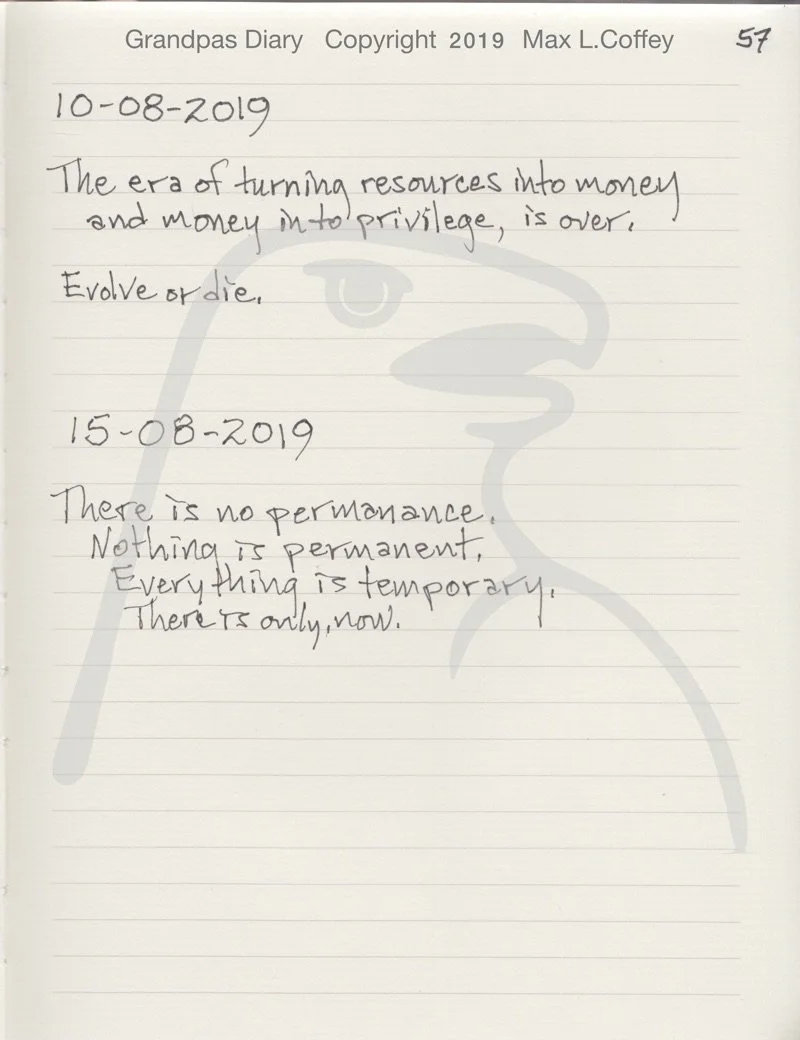 Grandpas Diary Copyright 2019 Max L.Coffey 57
10-08-2019
The era of turning resources into money
and money into privilege, is over.
Evolve or die.
15-08-2019
There is no permanance.
Nothing is permanent.
Everything is temporary.
There is only, now.